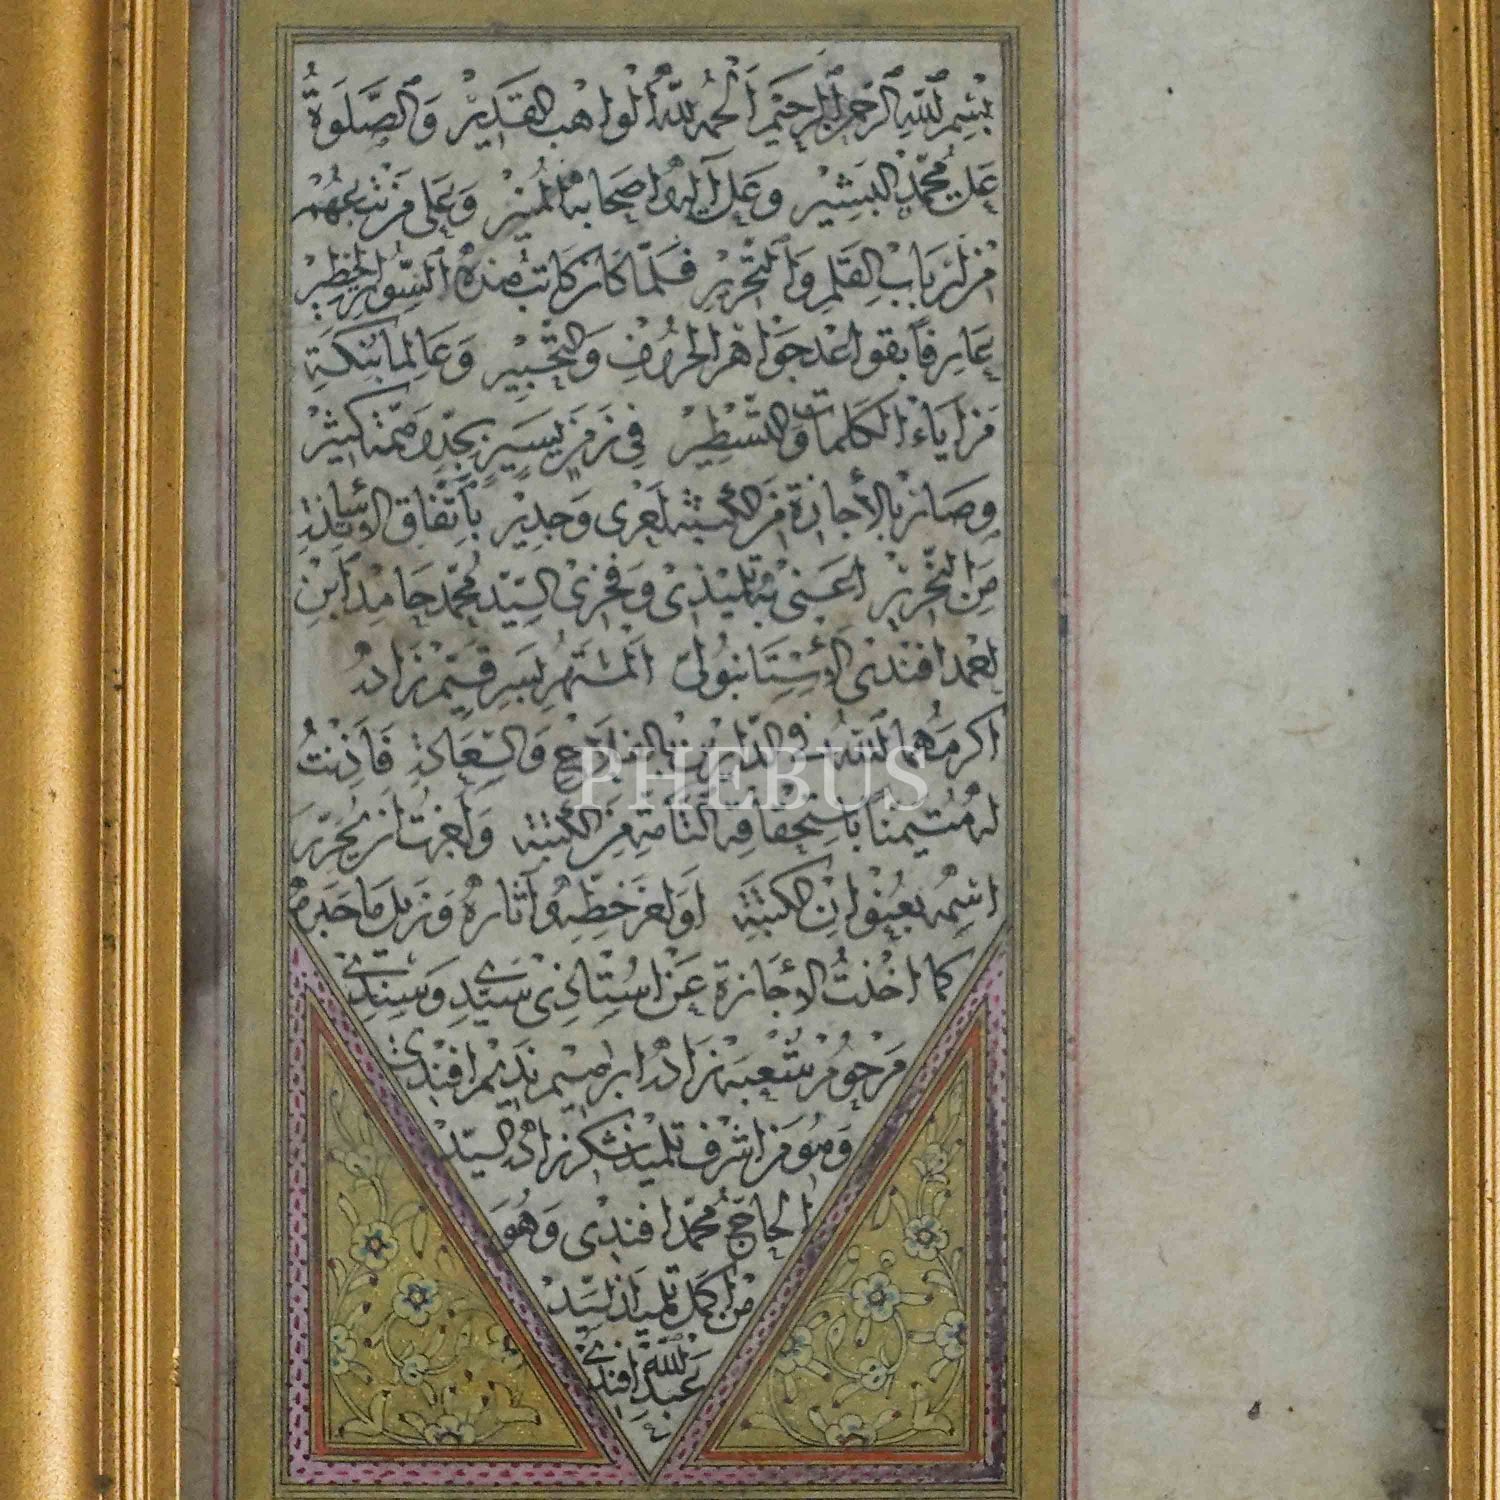 بسم الله الرحمن الرحيم الحمد لله الواهب القدير والصلوة
على محمد البشير وعلى آله واصحابه المنير وعلى من تبعهم
من ارباب القلم والتحرير فلما كان كاتب هذه السور الخطير
عارفا بقواعد جواهر الحروف والتحبير وعالما بنكة
مزاياء الكلمات والتسطير في زمن يسير بجد وهمة كثير
وصار بالأجازة من الكتبة لعرى وجدير باتفاق الاساتذ
من التحرير اعنى به تلميذى وفخرى السيد محمد حامد ابن
احمد افندى الاستانبولى المشتهر زاده
اكرمهما الله فى الدارين والسعادة فاذنت
له متيمنا باستحقاقه التامة من الكتبة ولجزت ان يحرر
اسمه بعنوان الكتبة خطه وآثاره وزبل ما حبره
كما اخذت الاجازة عن استاذى سيدى وسندى
مرحوم شعبه زاده ابراهيم نديم افندى
وهو من اشرف تلميذ شكرزاده السيد
الحاج محمد افندى وهو
من اكمل تلميذ السيد
عبد الله افندى
PHEBUS